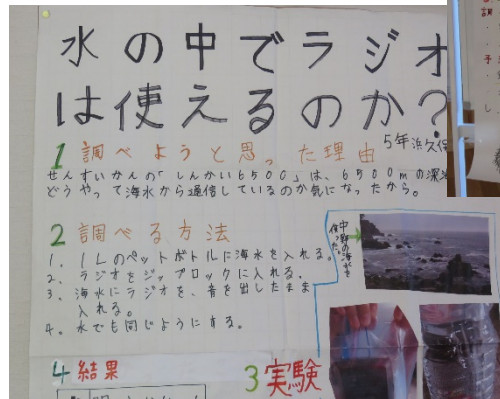 水の中でラジオ
は使えるのか?
5年 浜久保
1 調べようと思った理由
せんすいかんの「しんかい6500」は、6500mの深海
どうやって海水から通信しているのか気になったから。
2 調べる方法
1. 1Lのペットボトルに海水を入れる。
2. ラジオをジップロックに入れる。
3. 海水にラジオを、音を出したまま
入れる。
4. 水でも同じようにする。
中野の海水を
使った。
4 結果
3 実験